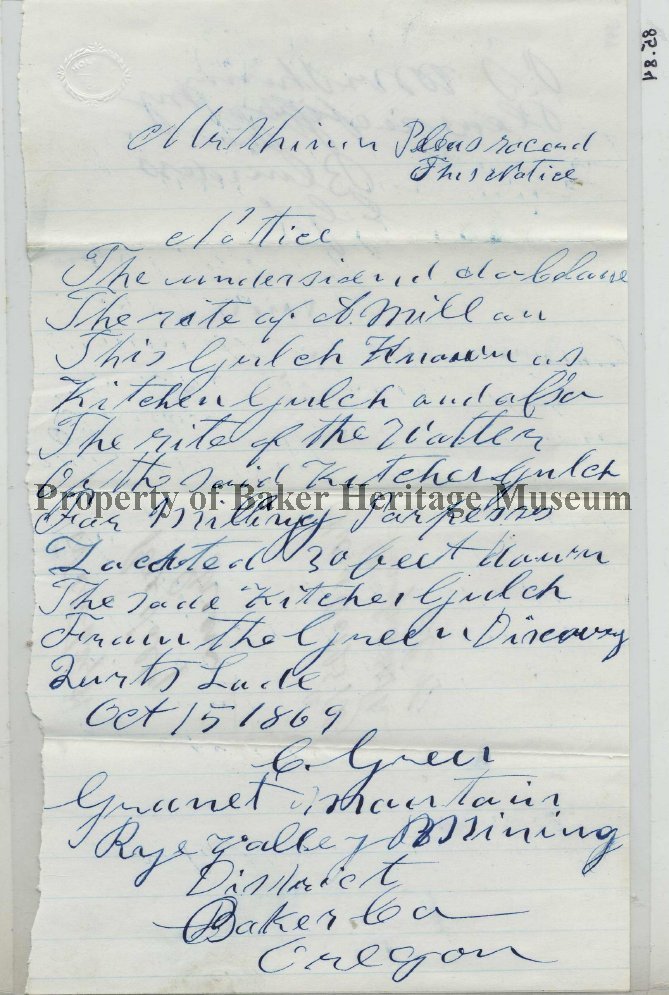 85.84
Mr Pleas record
This Notice
Nottice
The undersiend do Clame
The rite of A. Mill on
This Gulch Known as
Kitchen Gulch and also
The rite of the Watter
of the said Kitchen Gulch
Property of Baker Heritage Museum
For Milling Parpeses
Lackted 30 feet down
The sade Kitchen Gulch
From the Green Discovry
Qurts Lade
Oct 15 1869
C. Green
Granet Mountain
Rye Valley Mining
District
Baker Co
Oregon